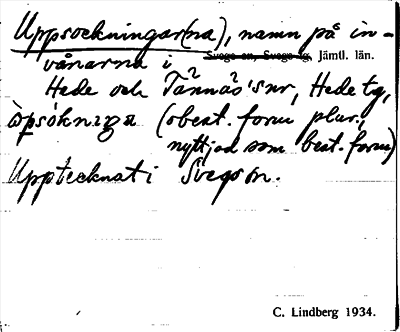 Uppsockningar(na), namn på in-
vånarna i Svegs sn, Svegs tg, Jämtl. län.
Hede och Tännäs' snr, Hede tg,
(obest. form plur.,
nyttjad som best. form)
Upptecknat i Svegs sn.
C. Lindberg 1934.